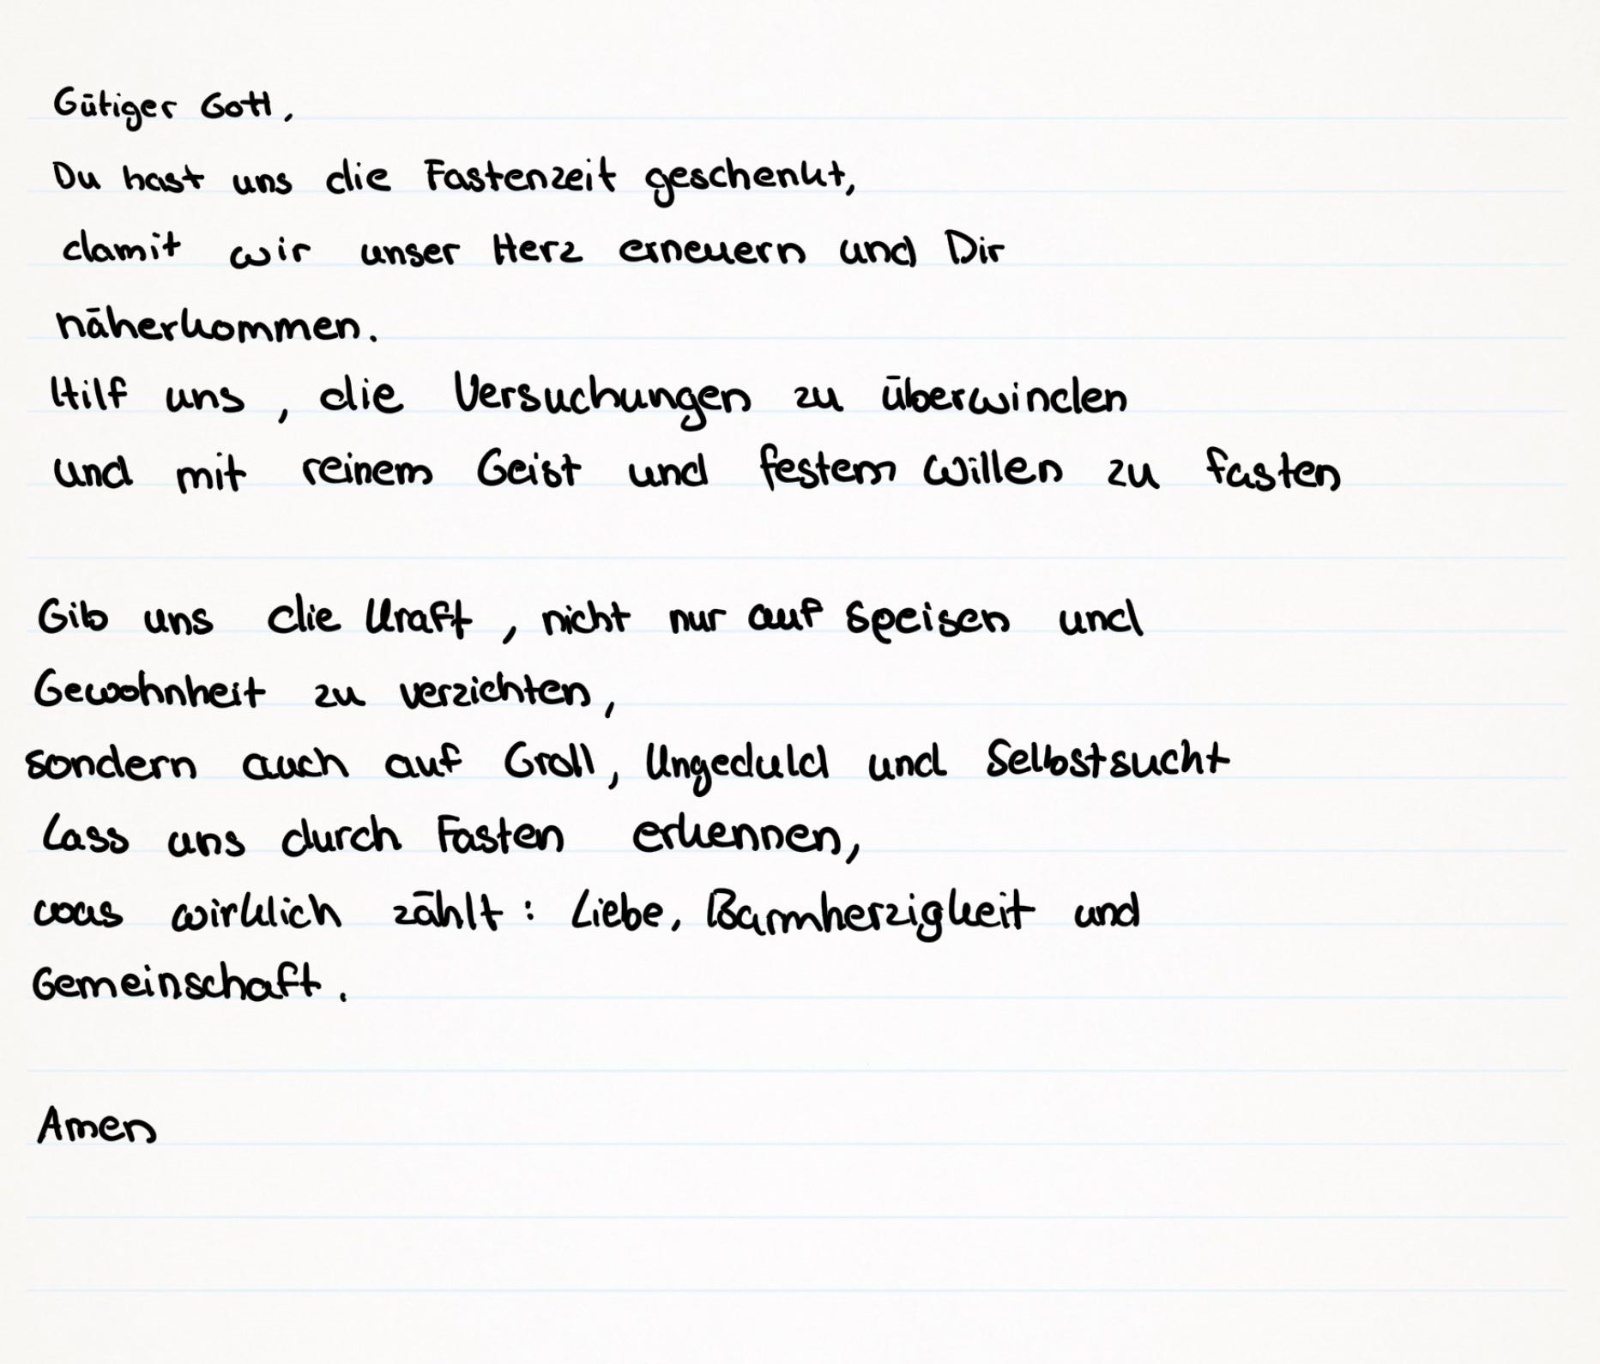 Gütiger Gott,
Du hast uns die Fastenzeit geschenkt,
damit wir unser Herz erneuern und Dir
näherkommen.
Hilf uns, die Versuchungen zu überwinden
und mit reinem Geist und festem Willen zu fasten
Gib uns die Kraft, nicht nur auf Speisen und
Gewohnheit zu verzichten,
sondern auch auf Groll, Ungeduld und Selbstsucht
Lass uns durch Fasten erkennen,
was wirklich zählt: Liebe, Barmherzigkeit und
Gemeinschaft.
Amen